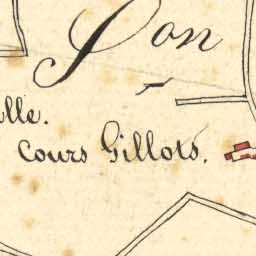 Son
lle.
Cours Gillots.